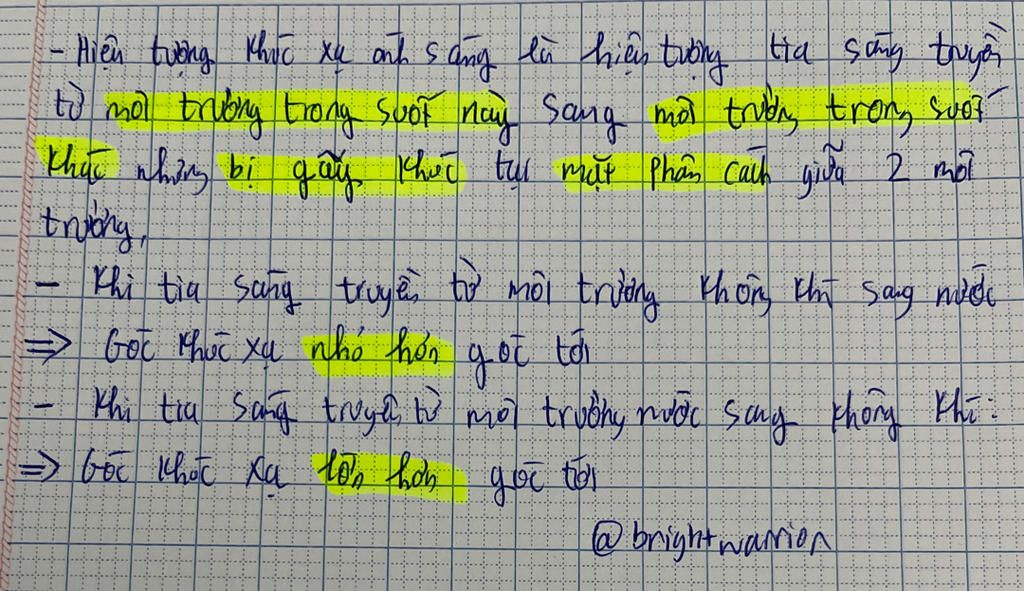 - Hiện tượng khúc xạ ánh sáng là hiện tượng tia sáng truyền
từ môi trường trong suốt này sang môi trường trong suốt
khác nhưng bị gãy khúc tại mặt phân cách giữa 2 môi
trường,
- Khi tia sáng truyền từ môi trường không khí sang nước
⇒ Góc khúc xạ nhỏ hơn góc tới
- Khi tia sáng truyền từ môi trường nước sang không khí:
⇒ Góc khúc xạ lớn hơn góc tới
@brightwarrion